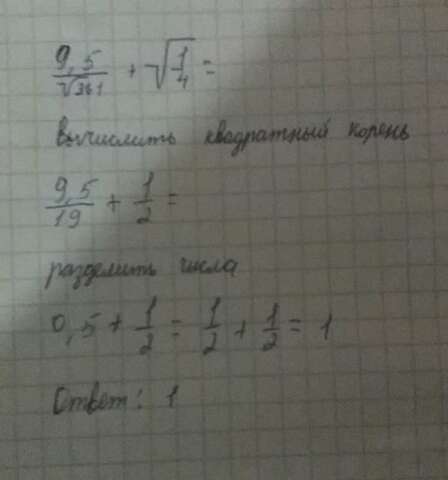 9,5/√361 + √1/4 =
вычислить квадратный корень
9,5/19 + 1/2 =
разделить числа
0,5 + 1/2 = 1/2 + 1/2 = 1
Ответ: 1